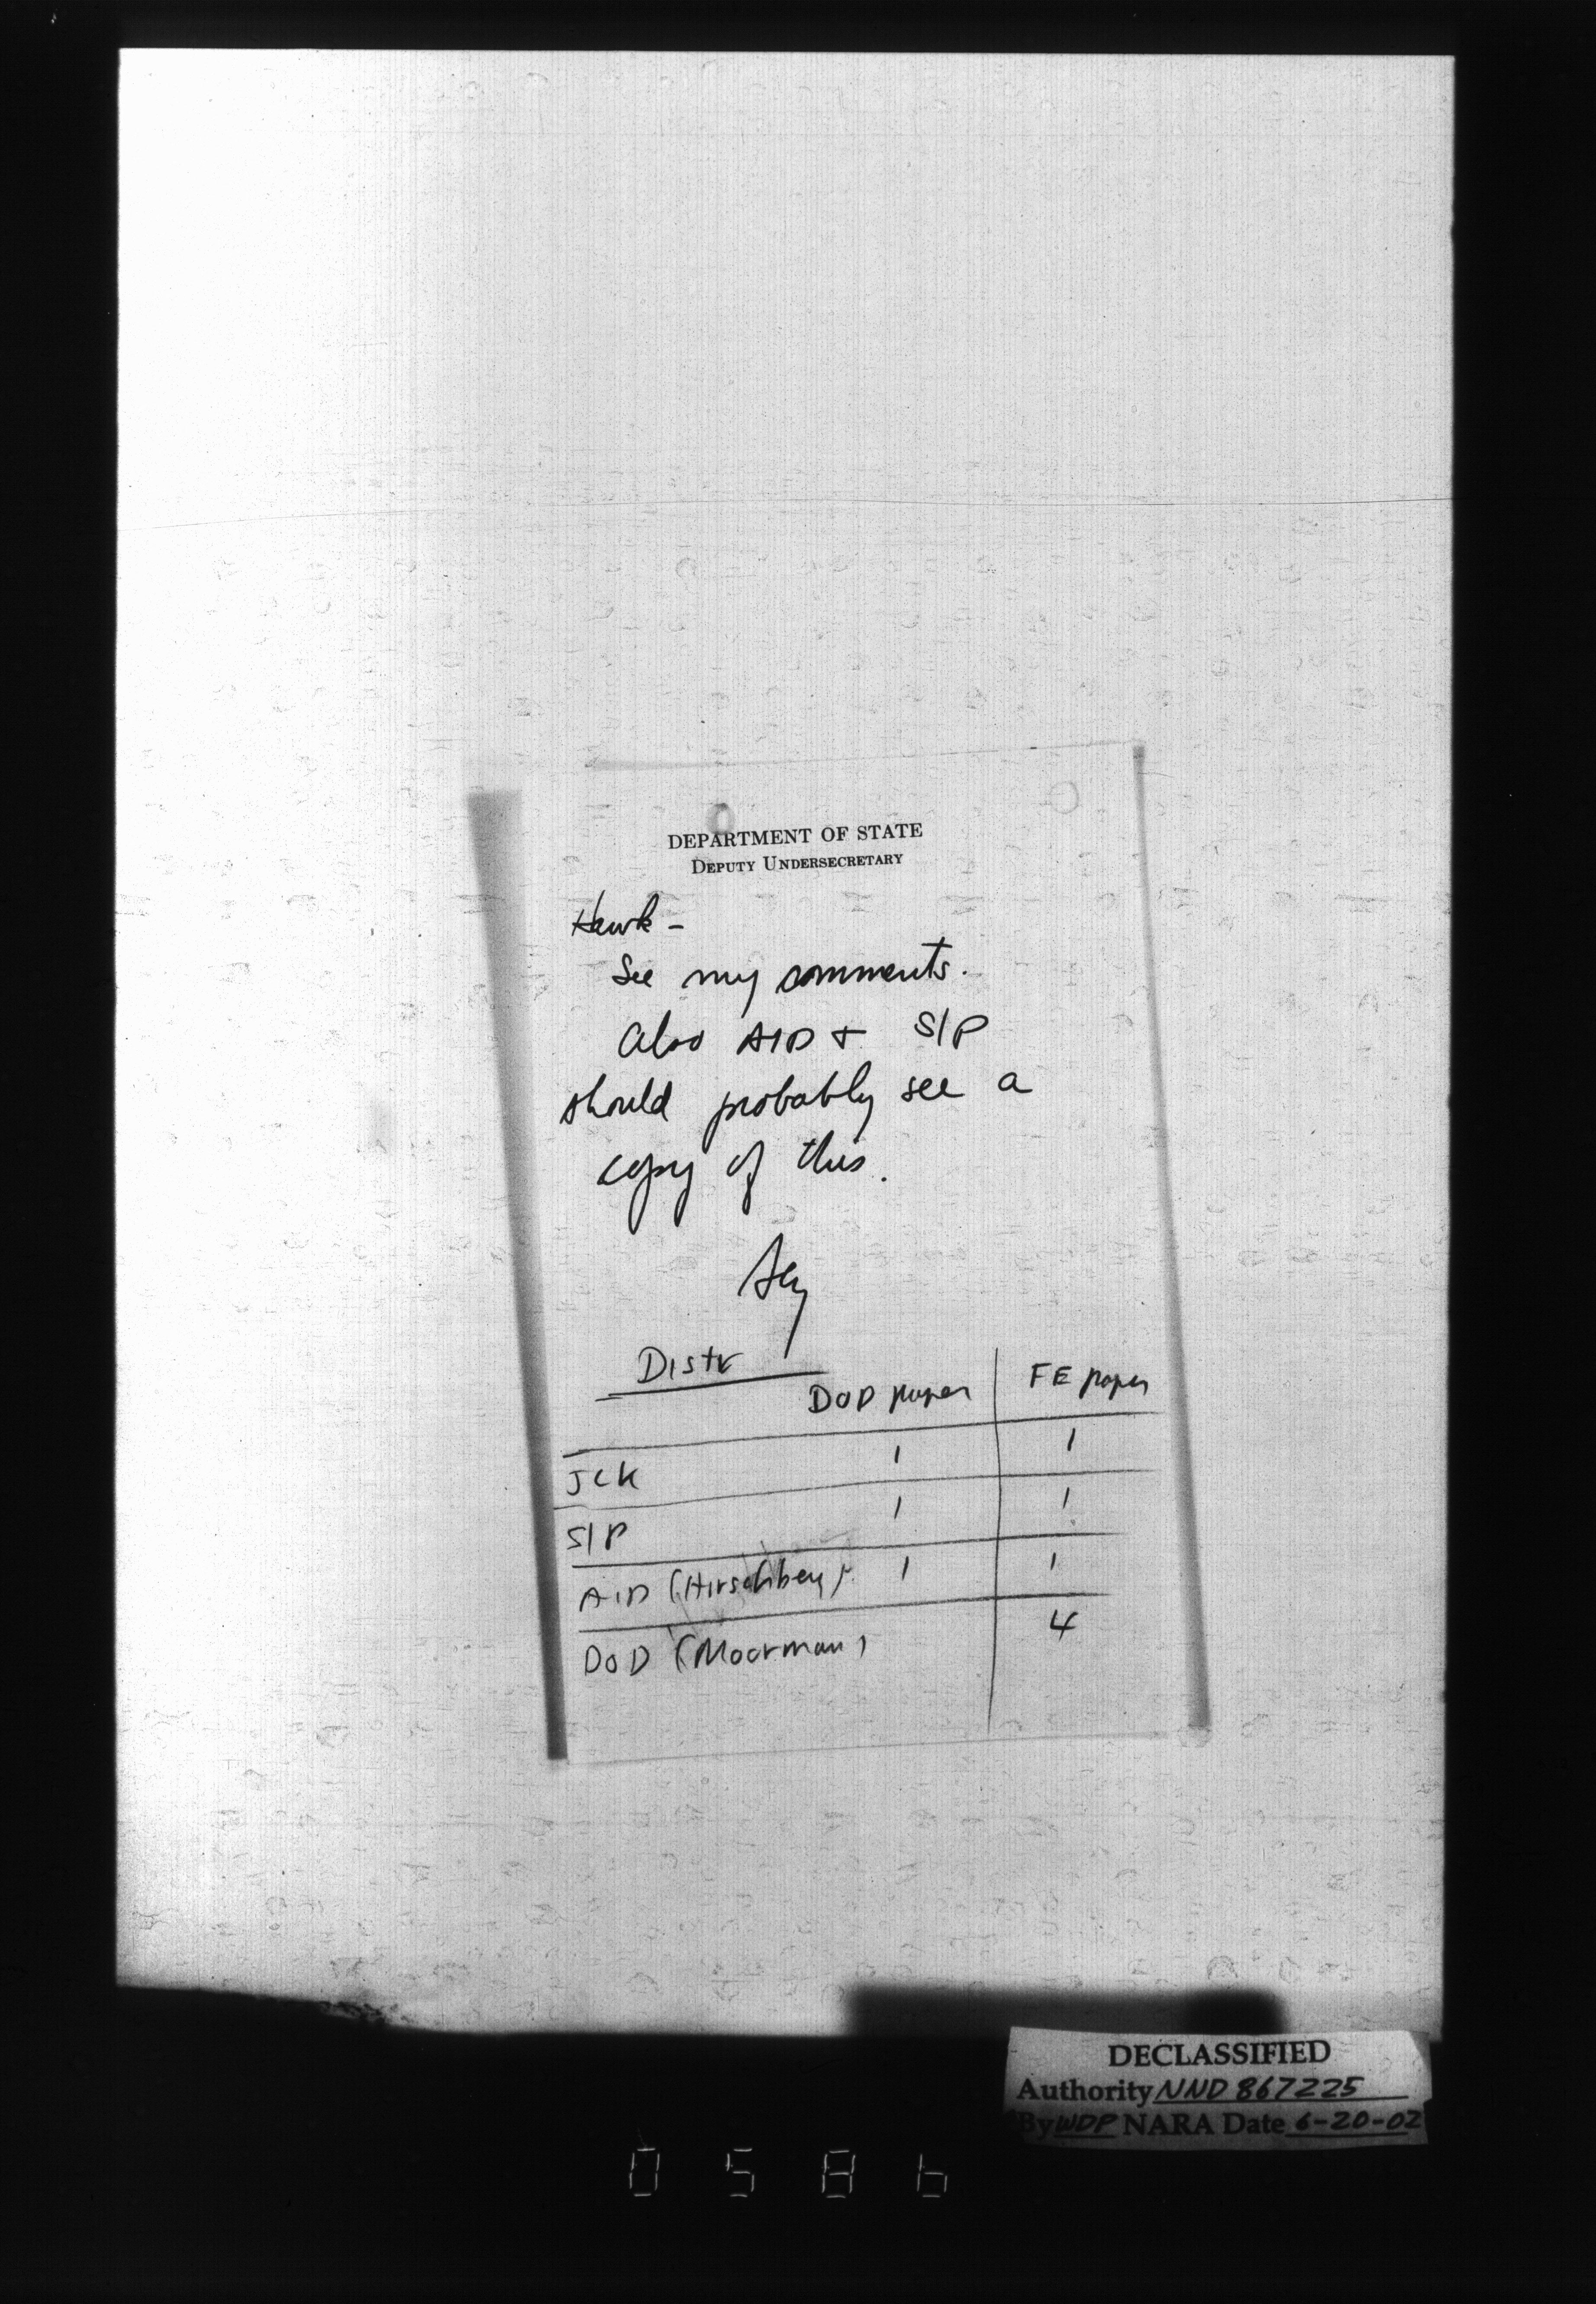 DEPARTMENT OF STATE
DEPUTY UNDERSECRETARY
Hawk -
See my comments.
Also AID + S/P
should probably see a
copy of this.
Distr
DOD paper FE paper
JCK 1 1
S/P 1 1
AID (Hirschberg) 1 1
DOD (Moorman) 4
DECLASSIFIED
Authority NND 867225
By WDP NARA Date 6-20-02
0586